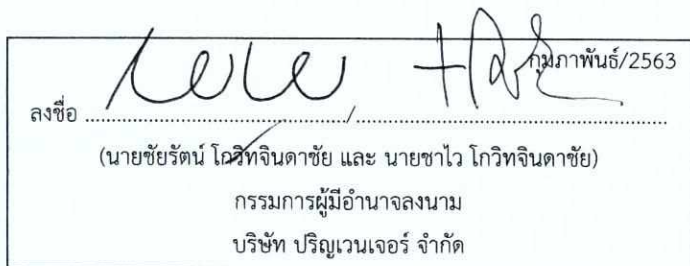 กุมภาพันธ์/2563
ลงชื่อ ............................................/......................................................
(นายชัยรัตน์ โกวิทจินดาชัย และ นายชาไว โกวิทจินดาชัย)
กรรมการผู้มีอำนาจลงนาม
บริษัท ปริญเวนเจอร์ จำกัด